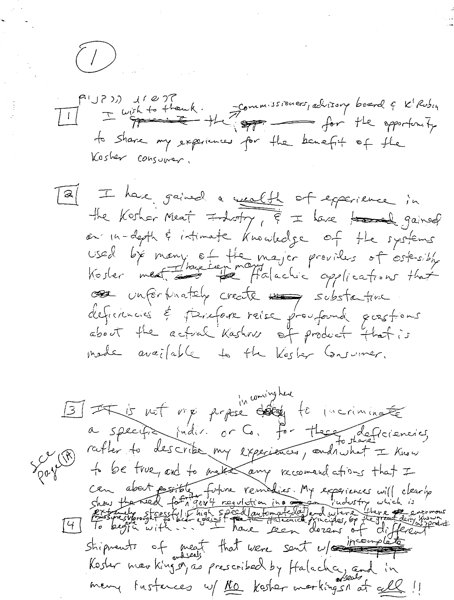 1
1 I wish to thank the commissioners, advisory board & K' Rubin for the opportunity
to share my experiences for the benefit of the
Kosher consumer.
2 I have gained a wealth of experience in
the Kosher Meat Industry, & I have gained
an in-depth & intimate knowledge of the systems
used by many of the major providers of ostensibly
Kosher meat. I have seen many Halachic applications that
unfortunately create substantive
deficiencies & therefore raise profound questions
about the actual Kashrus of product that is
made available to the Kosher Consumer.
3 It is not my purpose in coming here to incriminate
a specific indiv. or Co. for these deficiencies,
rather to describe my experiences, to share what I know
to be true, and to make any recommendations that I
See Page 1A
can about possible future remedies. My experiences will clearly
show the need for gov't regulation in industry which is
stressful & high speed automated and where there enormous
4 To begin with.... I have seen dozens of different
shipments of meat that were sent w/ incomplete
Kosher markings, as prescribed by Halacha, and in
many instances w/ NO Kosher markings at all!!